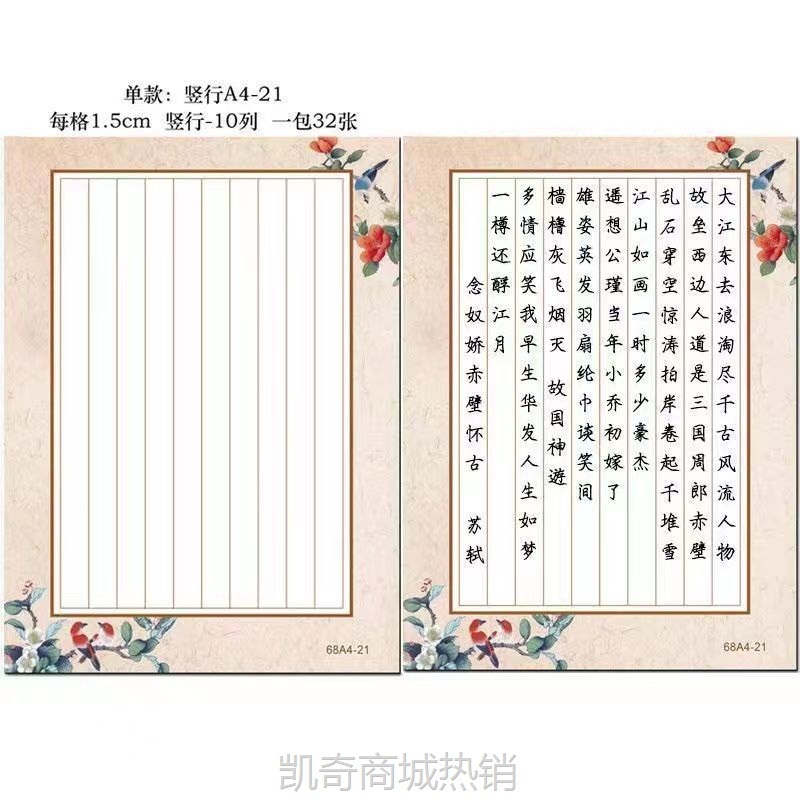 单款：竖行A4-21
每格1.5cm 竖行-10列 一包32张
大江东去浪淘尽千古风流人物
故垒西边人道是三国周郎赤壁
乱石穿空惊涛拍岸卷起千堆雪
江山如画一时多少豪杰
遥想公瑾当年小乔初嫁了
雄姿英发羽扇纶巾谈笑间
樯橹灰飞烟灭 故国神遊
多情应笑我早生华发人生如梦
一樽还酹江月
念奴娇赤壁怀古 苏轼
68A4-21
68A4-21
凯奇商城热销